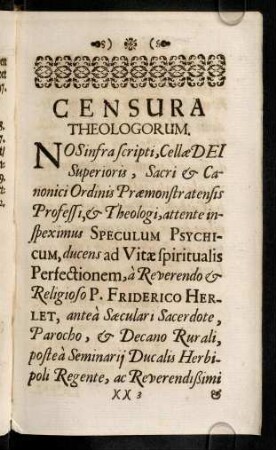 s) ❋ (s
CENSURA
THEOLOGORUM.
NOS infra scripti, Cellæ DEI
Superioris, Sacri & Ca-
nonici Ordinis Præmonstratensis
Professi, & Theologi, attente in-
speximus SPECULUM PSYCHI-
CUM, ducens ad Vitæ spiritualis
Perfectionem, à Reverendo &
Religioso P. FRIDERICO HER-
LET, anteà Sæculari Sacerdote,
Parocho, & Decano Rurali,
posteà Seminarij Ducalis Herbi-
poli Regente, ac Reverendissimi
XX 3 &